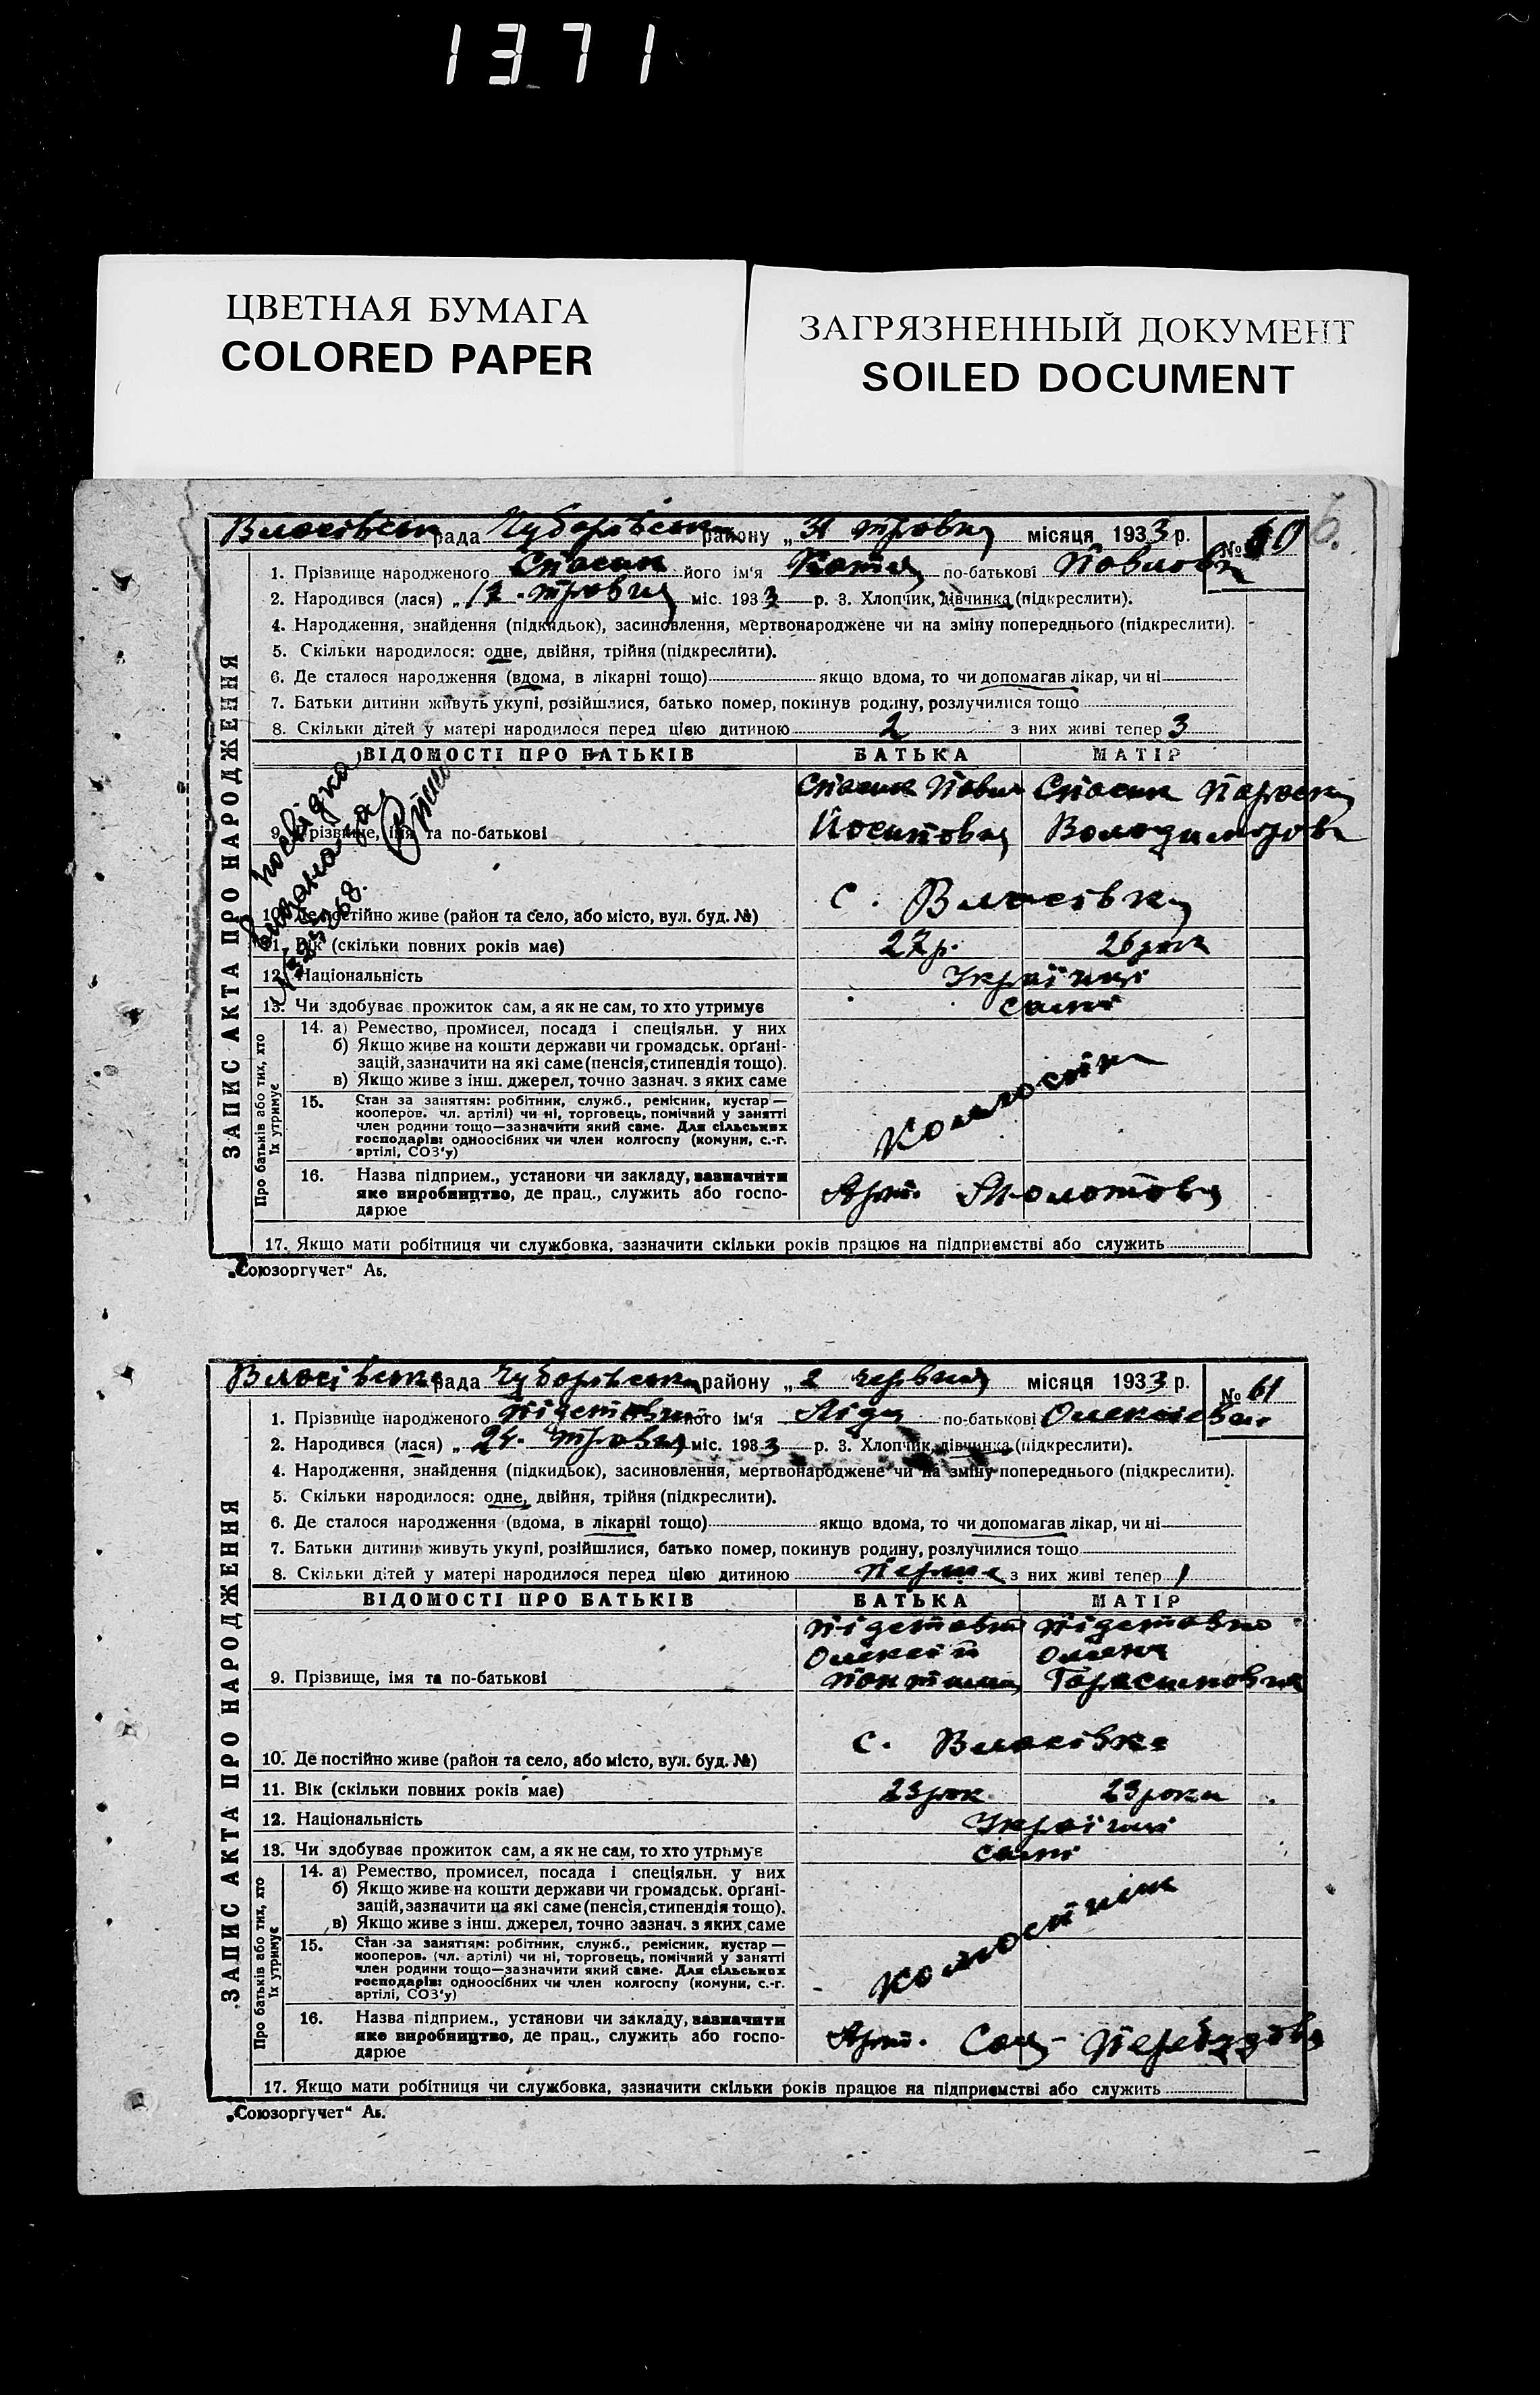 1371
ЦВЕТНАЯ БУМАГА
COLORED PAPER
ЗАГРЯЗНЕННЫЙ ДОКУМЕНТ
SOILED DOCUMENT
рада району „31 місяця 1933 р. № 60
1. Прізвище народженого Спасик його ім'я Катя по-батькові Повлов
2. Народився (лася) „ міс. 1933 р. 3. Хлопчик, дівчинка (підкреслити).
4. Народження, знайдення (підкидьок), засиновлення, мертвонароджене чи на зміну попереднього (підкреслити).
5. Скільки народилося: одне, двійня, трійня (підкреслити).
6. Де сталося народження (вдома, в лікарні тощо) якщо вдома, то чи допомагав лікар, чи ні
7. Батьки дитини живуть укупі, розійшлися, батько помер, покинув родину, розлучилися тощо
8. Скільки дітей у матері народилося перед цією дитиною 2 з них живі тепер 3
ЗАПИС АКТА ПРО НАРОДЖЕННЯ
ВІДОМОСТІ ПРО БАТЬКІВ БАТЬКА МАТІР
посвідка видана за
9. Прізвище, імя та по-батькові
10. Де постійно живе (район та село, або місто, вул. буд. №) с. Власівка
11. Вік (скільки повних років має) 27 р. 26
12. Національність Українці
13. Чи здобуває прожиток сам, а як не сам, то хто утримує самі
Про батьків або тих, хто їх утримує
14. а) Ремество, промисел, посада і спеціяльн. у них
б) Якщо живе на кошти держави чи громадськ. орґані-
зацій, зазначити на які саме (пенсія, стипендія тощо).
в) Якщо живе з інш. джерел, точно зазнач. з яких саме
15. Стан за заняттям: робітник, служб., ремісник, кустар —
кооперов. чл. артілі) чи ні, торговець, помічний у занятті
член родини тощо—зазначити який саме. Для сільських
господарів: одноосібних чи член колгоспу (комуни, с.-г.
артілі, СОЗ'у)
16. Назва підприєм., установи чи закладу, зазначити
яке виробництво, де прац., служить або госпо-
дарює
Арт. Молотова
17. Якщо мати робітниця чи службовка, зазначити скільки років працює на підприємстві або служить
„Союзоргучет“ Аб.
рада району „2 червня місяця 1933 р. № 61
1. Прізвище народженого його ім'я Ліда по-батькові
2. Народився (лася) „24. міс. 1933 р. 3. Хлопчик, дівчинка (підкреслити).
4. Народження, знайдення (підкидьок), засиновлення, мертвонароджене чи на зміну попереднього (підкреслити).
5. Скільки народилося: одне, двійня, трійня (підкреслити).
6. Де сталося народження (вдома, в лікарні тощо) якщо вдома, то чи допомагав лікар, чи ні
7. Батьки дитини живуть укупі, розійшлися, батько помер, покинув родину, розлучилися тощо
8. Скільки дітей у матері народилося перед цією дитиною з них живі тепер 1
ЗАПИС АКТА ПРО НАРОДЖЕННЯ
ВІДОМОСТІ ПРО БАТЬКІВ БАТЬКА МАТІР
Олексій Олена
9. Прізвище, імя та по-батькові
10. Де постійно живе (район та село, або місто, вул. буд. №) с. Власівка
11. Вік (скільки повних років має) 23 рок 23 роки
12. Національність Українці
13. Чи здобуває прожиток сам, а як не сам, то хто утримує самі
Про батьків або тих, хто їх утримує
14. а) Ремество, промисел, посада і спеціяльн. у них
б) Якщо живе на кошти держави чи громадськ. орґані-
зацій, зазначити на які саме (пенсія, стипендія тощо).
в) Якщо живе з інш. джерел, точно зазнач. з яких саме
15. Стан за заняттям: робітник, служб., ремісник, кустар —
кооперов. (чл. артілі) чи ні, торговець, помічний у занятті
член родини тощо—зазначити який саме. Для сільських
господарів: одноосібних чи член колгоспу (комуни, с.-г.
артілі, СОЗ'у)
16. Назва підприєм., установи чи закладу, зазначити
яке виробництво, де прац., служить або госпо-
дарює
Арт.
17. Якщо мати робітниця чи службовка, зазначити скільки років працює на підприємстві або служить
„Союзоргучет“ Аб.